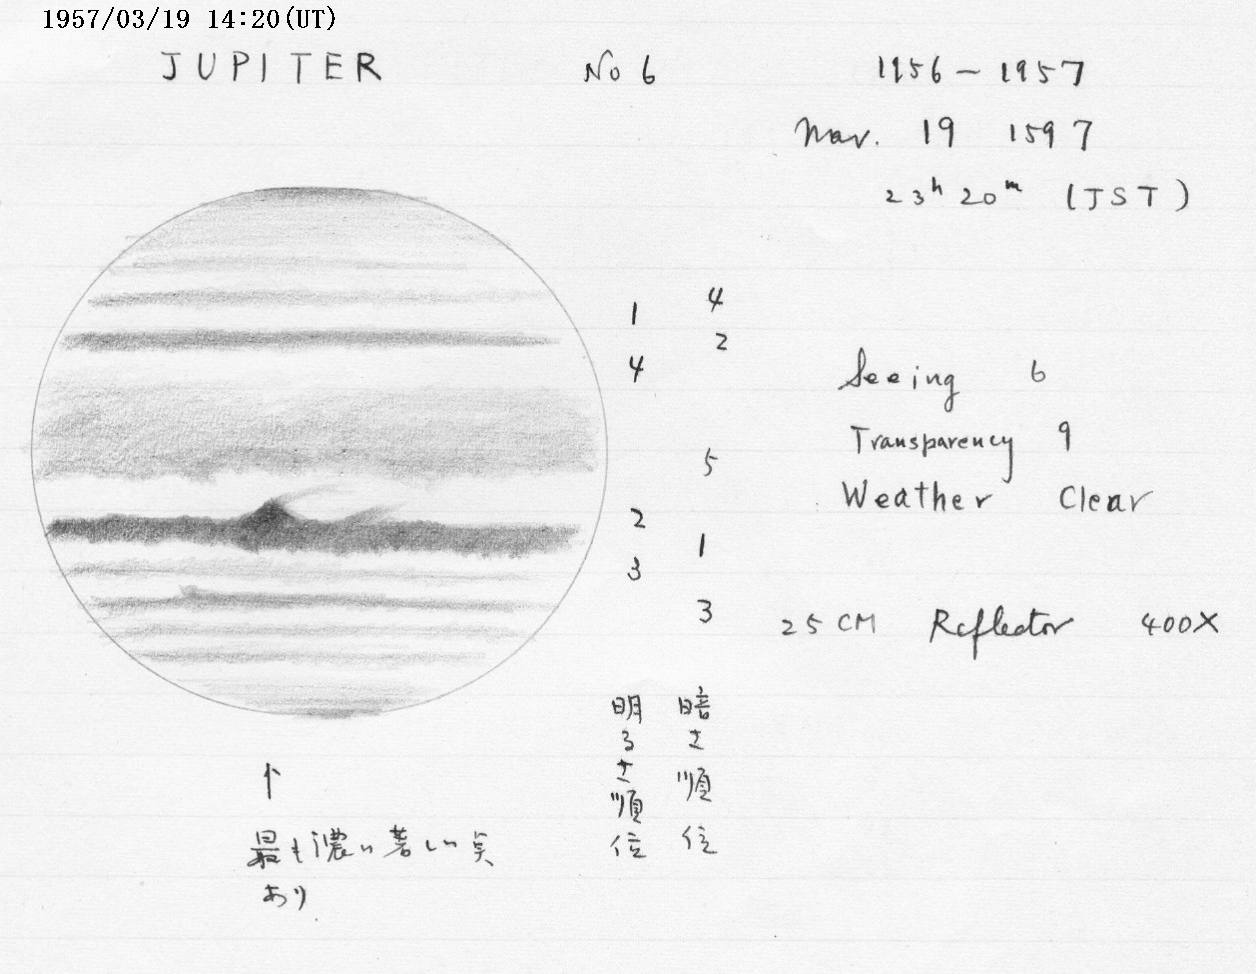 1957/03/19 14:20(UT)
JUPITER No 6 1956-1957
Mar. 19 1597
23h 20m (JST)
1 4
2
4
5
2
1
3
3
Seeing 6
Transparency 9
Weather Clear
25 CM Reflector 400X
明るさ順位
暗さ順位
↑
最も濃い著しい点
あり